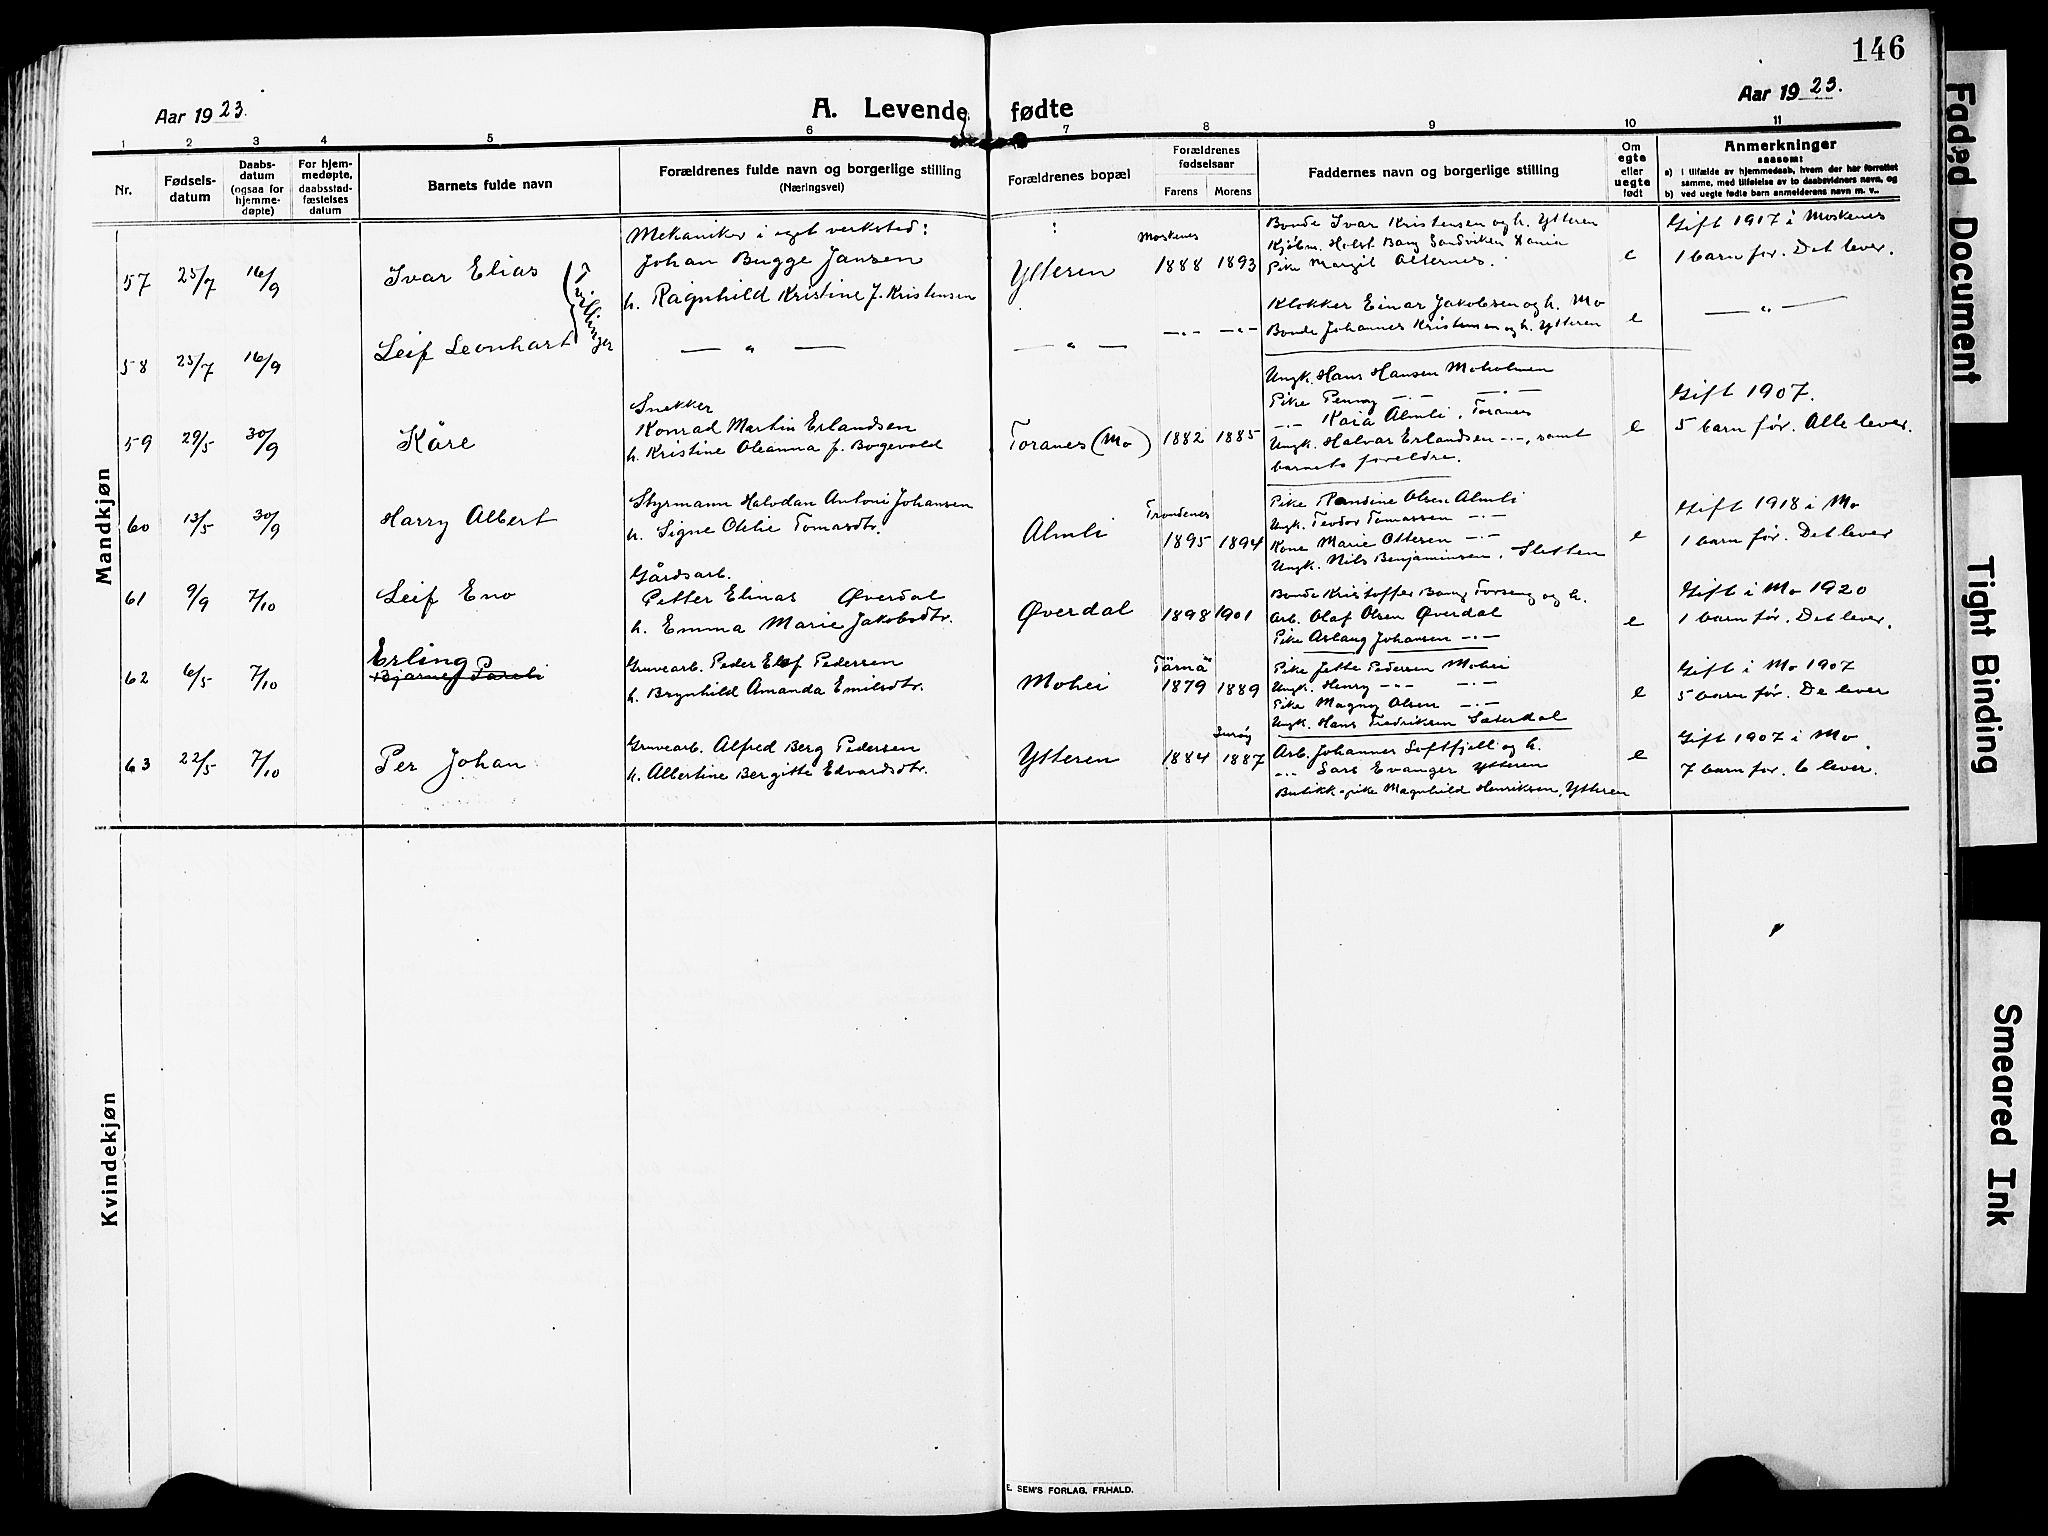 146
Aar 1923.
A. Levende fødte
Aar 1923.
1 2 3 4 5 6 7 8 9 10 11
Nr.
Fødsels-
datum
Daabs-
datum
(ogsaa for
hjemme-
døpte)
For hjem-
medøpte,
daabsstad-
fæstelses
datum
Barnets fulde navn
Forældrenes fulde navn og borgerlige stilling
(Næringsvei)
Forældrenes bopæl
Forældrenes
fødselsaar
Farens Morens
Faddernes navn og borgerlige stilling
Om
egte
eller
uegte
født
Anmerkninger
saasom:
a) i tilfælde av hjemmedaab, hvem der har forrettet
samme, med tilføielse av to daabsvidners navn, og
b) ved uegte fødte barn anmelderens navn m. v..
Mandkjøn
57 25/7 16/9 Ivar Elias
Tvillinger
Mekaniker i eget verksted:
Johan Bugge Jansen
h. Ragnhild Kristine f. Kristensen
Ytteren
Moskenes
1888 1893
Bonde Ivar Kristensen og h. Ytteren
Kjøbm. Holst Bang Sandviken Xania
Pike Margit Alternes.
e
Gift 1917 i Moskenes
1 barn før. Det lever.
58 25/7 16/9 Leif Leonhart
— " —
— " —
—"— —"—
Klokker Einar Jakobsen og h. Mo
Bonde Johannes Kristensen og h. Ytteren
e
— " —
59 29/5 30/9 Kåre
Snekker
Konrad Martin Erlandsen
h. Kristine Oleanna f. Bogevold
Toranes (Mo)
1882 1885
Ungk. Hans Hansen Moholmen
Pike Penny —"—
—"— Kaia Almli, Toranes
Ungk. Halvar Erlandsen —"—, samt
barnets foreldre.
e
Gift 1907.
5 barn før. Alle lever.
60 13/5 30/9 Harry Albert
Styrmann Halvdan Antoni Johansen
h. Signe Otelie Tomasdtr.
Almli
Trondenes
1895 1894
Pike Randine Olsen Almli
Ungk. Teodor Tomassen —"—
Kone Marie Ottesen —"—
Ungk. Nils Benjaminsen, Sletten
e
Gift 1918 i Mo
1 barn før. Det lever
61 9/9 7/10 Leif Eno
Gårdsarb.
Petter Elinas Øverdal
h. Emma Marie Jakobsdtr.
Øverdal
1898 1901
Bonde Kristoffer Bang Forseng og h.
Arb. Olaf Olsen Øverdal
Pike Aslaug Johansen —"—
e
Gift i Mo 1920
1 barn før. Det lever.
62 6/5 7/10 Erling P
Bjarne
Gruvearb. Peder Elof Pedersen
h. Brynhild Amanda Emilsdtr.
Mohei
Tärnä
1879 1889
Pike Jette Pedersen Mohei
Ungk. Henry —"— —"—
Pike Magny Olsen —"—
Ungk. Hans Fredriksen Sæterdal
e
Gift i Mo 1907
5 barn før. De lever
63 22/5 7/10 Per Johan
Gruvearb. Alfred Berg Pedersen
h. Albertine Bergitte Edvardsdtr.
Ytteren
Lurøy
1884 1887
Arb. Johannes Loftfjell og h.
—"— Lars Evanger Ytteren
Butikk-pike Magnhild Henriksen, Ytteren
e
Gift 1907 i Mo.
7 barn før. 6 lever.
Kvindekjøn
E. SEM'S FORLAG. FR.HALD.
Faded Document
Tight Binding
Smeared Ink